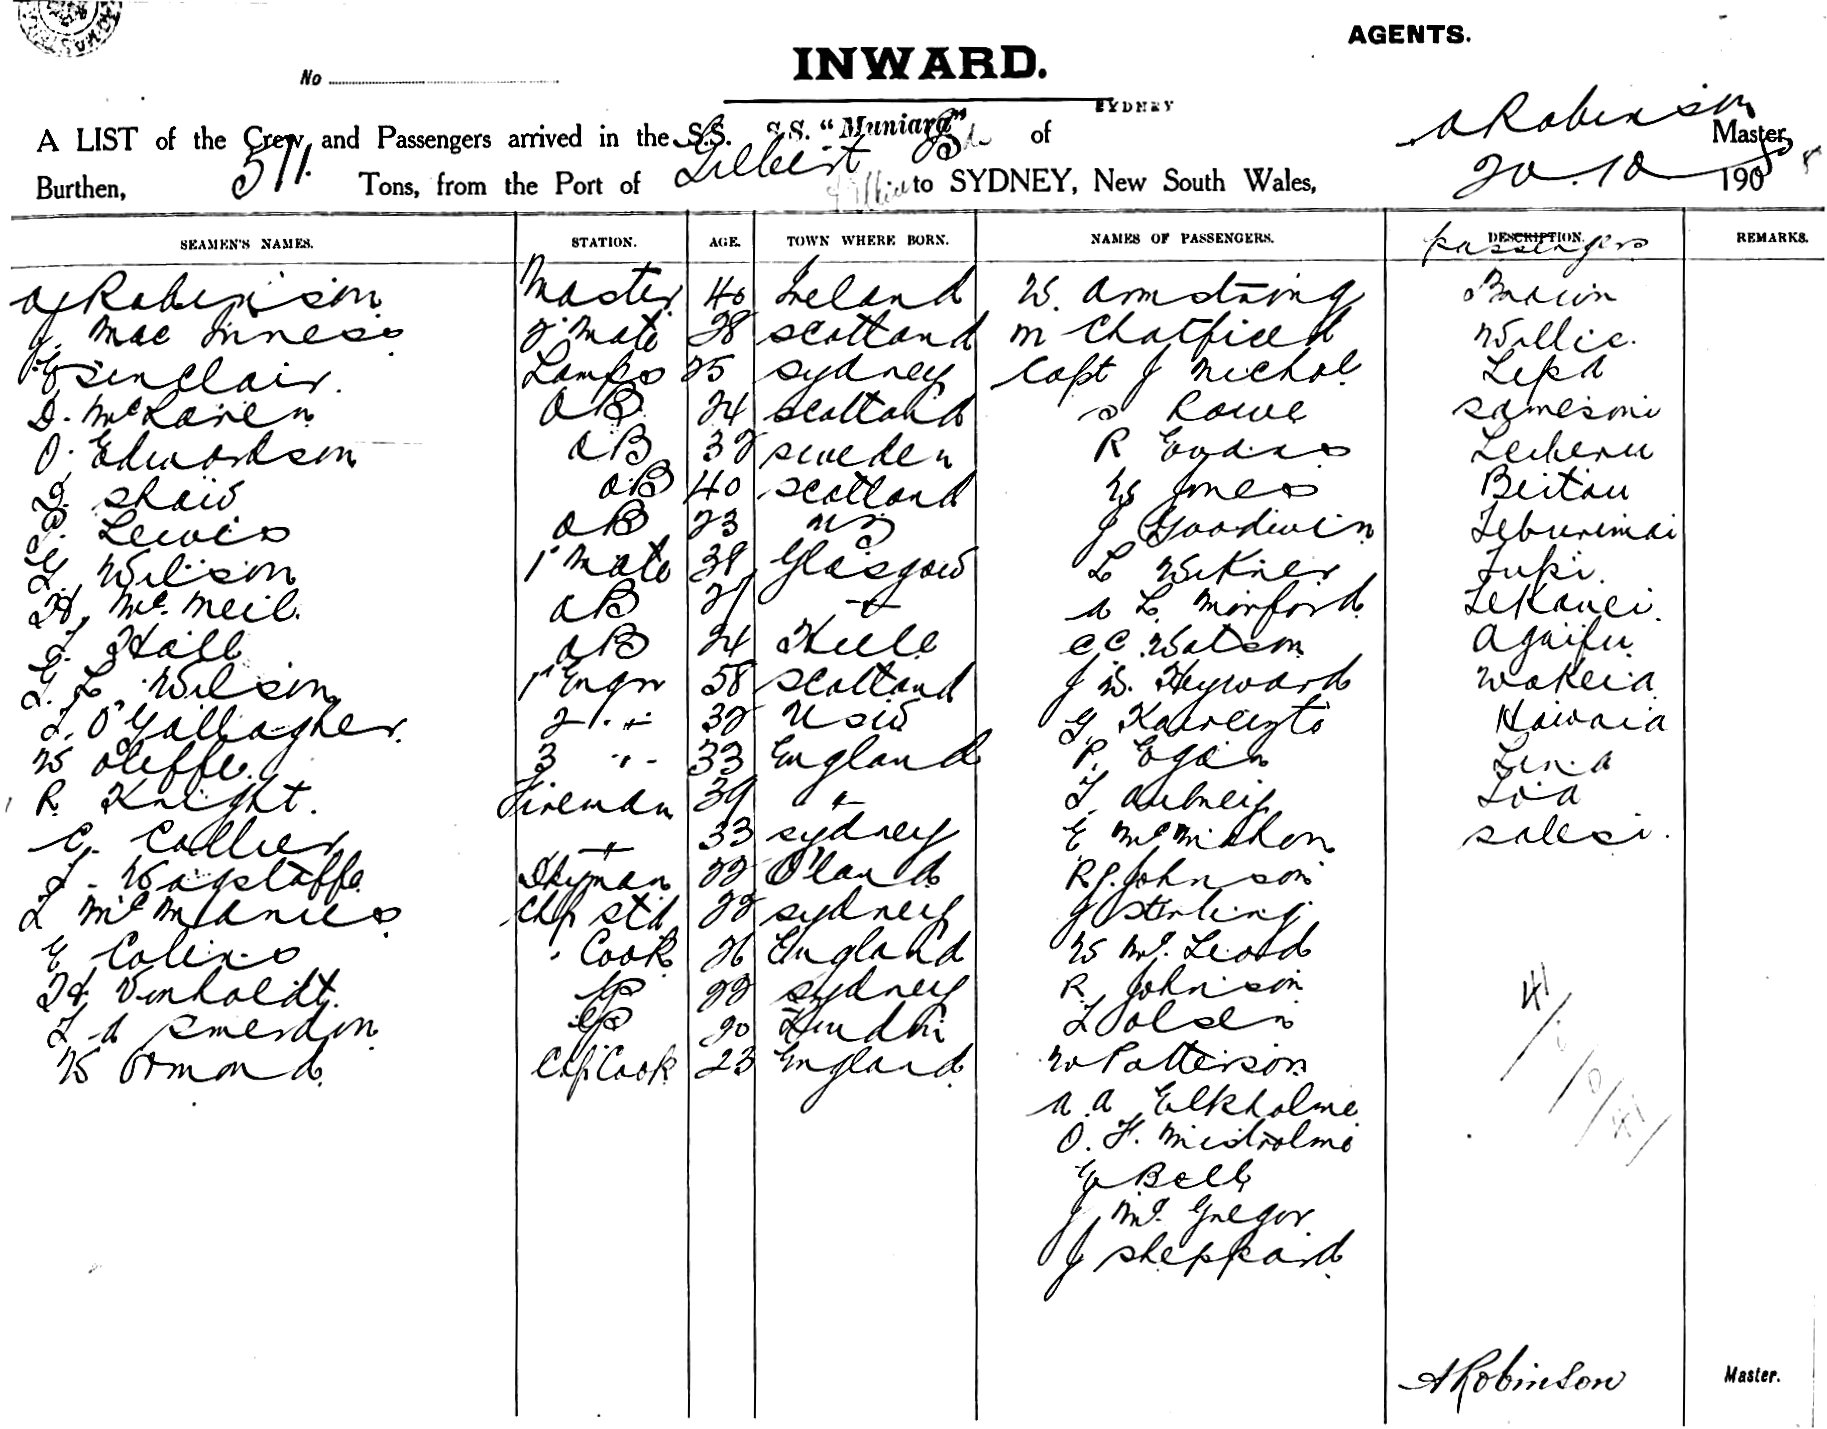 AGENTS.
INWARD.
No
SYDNEY
A LIST of the Crew and Passengers arrived in the S.S. S.S. "Muniara" of A Robinson Master,
Burthen, 511 Tons, from the Port of Gilbert Isd to SYDNEY, New South Wales, 20.10 1908
SEAMEN'S NAMES. STATION. AGE. TOWN WHERE BORN. NAMES OF PASSENGERS. DESCRIPTION. passengers REMARKS.
A Robinson Master 40 Ireland W. Armstrong Brown
J. Mac Inness 2 Mate 28 Scotland M Chatfield Willie.
Sinclair. Lamps 25 Sydney Capt J Nichol
D. McLaren AB 24 Scotland Rowe Samesoni
O. Edwardson AB 32 Sweden R Evans
D. Shaw AB 40 Scotland W Jones Beitau
Lewis AB 23 NZ J Goodwin Teburimai
G. Wilson 1 Mate 38 Glasgow L Wikner Tupi.
H. Mc. Neil. AB 21 A L. Morford Tekauei.
J. Hall AB 24 Hull C C. Watson
G. L. Wilson 1 Engr 58 Scotland J W. Heyward Wakeia
T. O'Gallagher. 2 " 32 NSW G.
W 3 " 33 England P. Egan Lina
R Knight. Fireman 39 " T. Toa
C. Collier 33 Sydney E McMahon Salesi.
J. Wagstaffe 22 Q'land R J. Johnson
L McManus Chf Std 22 Sydney J Sterling
E Colins Cook 26 England W Mc. Leod
H. 22 Sydney R. Johnson
Smerdon 20 London T Olsen
W Ormond Chf Cook 23 England W Patterson
A. A Elkholme
O. F.
G Bell
J Mc. Gregor
J Sheppard
41
A Robinson Master.